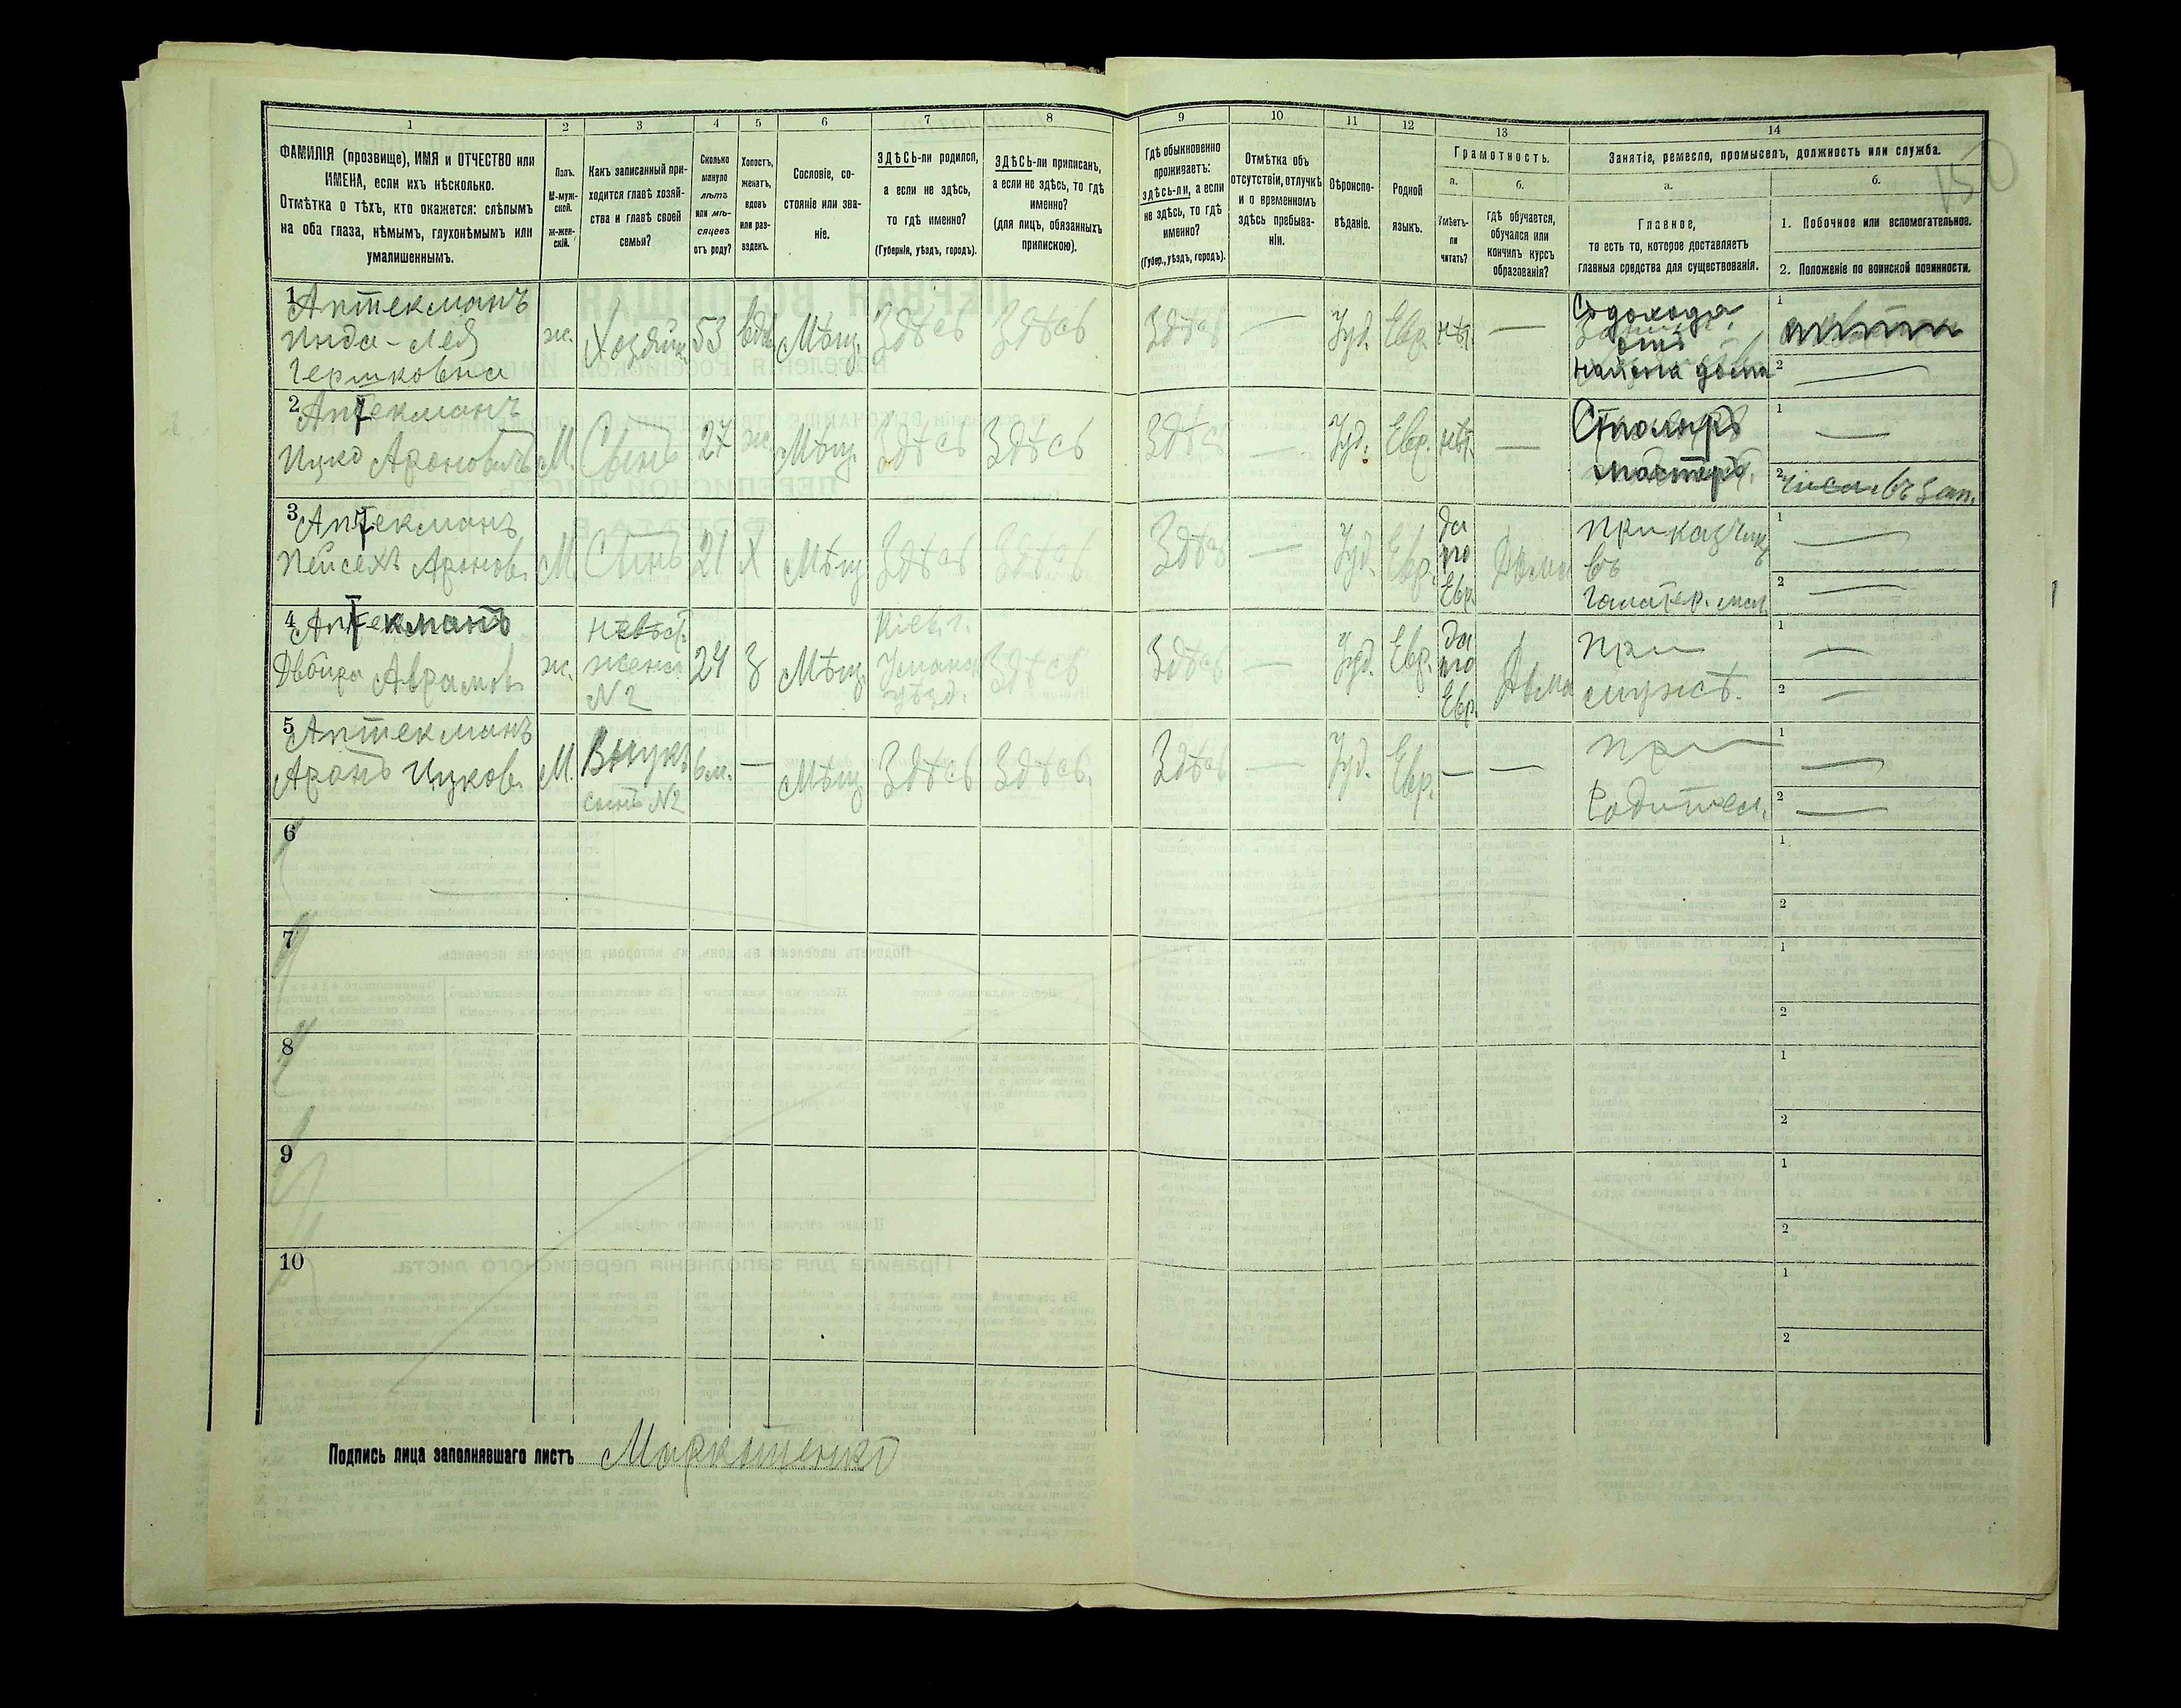 150
1 2 3 4 5 6 7 8 9 10 11 12 13 14
ФАМИЛІЯ (прозвище), ИМЯ и ОТЧЕСТВО или
ИМЕНА, если ихъ нѣсколько.
Отмѣтка о тѣхъ, кто окажется: слѣпымъ
на оба глаза, нѣмымъ, глухонѣмымъ или
умалишеннымъ.
Полъ.
М-муж-
ской.
Ж-жен-
скій.
Какъ записанный при-
ходится главѣ хозяй-
ства и главѣ своей
семьи?
Сколько
минуло
лѣтъ
или мѣ-
сяцевъ
отъ роду?
Холостъ,
женатъ,
вдовъ
или раз-
веденъ.
Сословіе, со-
стояніе или зва-
ніе.
ЗДѢСЬ-ли родился,
а если не здѣсь,
то гдѣ именно?
(Губернія, уѣздъ, городъ).
ЗДѢСЬ-ли приписанъ,
а если не здѣсь, то гдѣ
именно?
(для лицъ, обязанныхъ
припискою).
Гдѣ обыкновенно
проживаетъ:
здѣсь-ли, а если
не здѣсь, то гдѣ
именно?
(Губер., уѣздъ, городъ).
Отмѣтка объ
отсутствіи, отлучкѣ
и о временномъ
здѣсь пребыва-
ніи.
Вѣроиспо-
вѣданіе.
Родной
языкъ.
Грамотность.
а.
Умѣетъ-
ли
читать?
б.
гдѣ обучается,
обучался или
кончилъ курсъ
образованія?
Занятіе, ремесло, промыселъ, должность или служба.
а.
Главное,
то есть то, которое доставляетъ
главныя средства для существованія.
б.
1. Побочное или вспомогательное.
2. Положеніе по воинской повинности.
1 Аптекманъ
Инда-Лея
Гершковна
ж. Хозяйк. 53 вдв Мѣщ. Здѣсь Здѣсь Здѣсь — Іуд. Евр. нѣт. —
Съ дохода
отъ
найма дома
1
2 —
2 Аптекманъ
Ицко Ароновичъ
М. Сынъ 27 ж. Мѣщ. Здѣсь Здѣсь Здѣсь — Іуд. Евр. нѣт. —
Столяръ
мастеръ.
1 —
2
3 Аптекманъ
Пейсехъ Аронов.
М. Сынъ 21 Х Мѣщ Здѣсь Здѣсь Здѣсь — Іуд. Евр. да
по
Евр.
Дома
Приказчикъ
въ
галантер. маг.
1 —
2 —
4 Аптекманъ
Двойра Аврамов.
ж. Невѣст.
жена
N 2
24 З Мѣщ. Кіев. г.
Уманск
уѣзд.
Здѣсь Здѣсь — Іуд. Евр. Да
по
Евр.
Дома
При
мужѣ.
1 —
2 —
5 Аптекманъ
Аронъ Ицков.
М. Внукъ
сынъ N2
6 м. — Мѣщ. Здѣсь Здѣсь. Здѣсь — Іуд. Евр. — —
При
родител.
1 —
2 —
6 1
2
7 1
2
8 1
2
9 1
2
10 1
2
Подпись лица заполнявшаго листъ